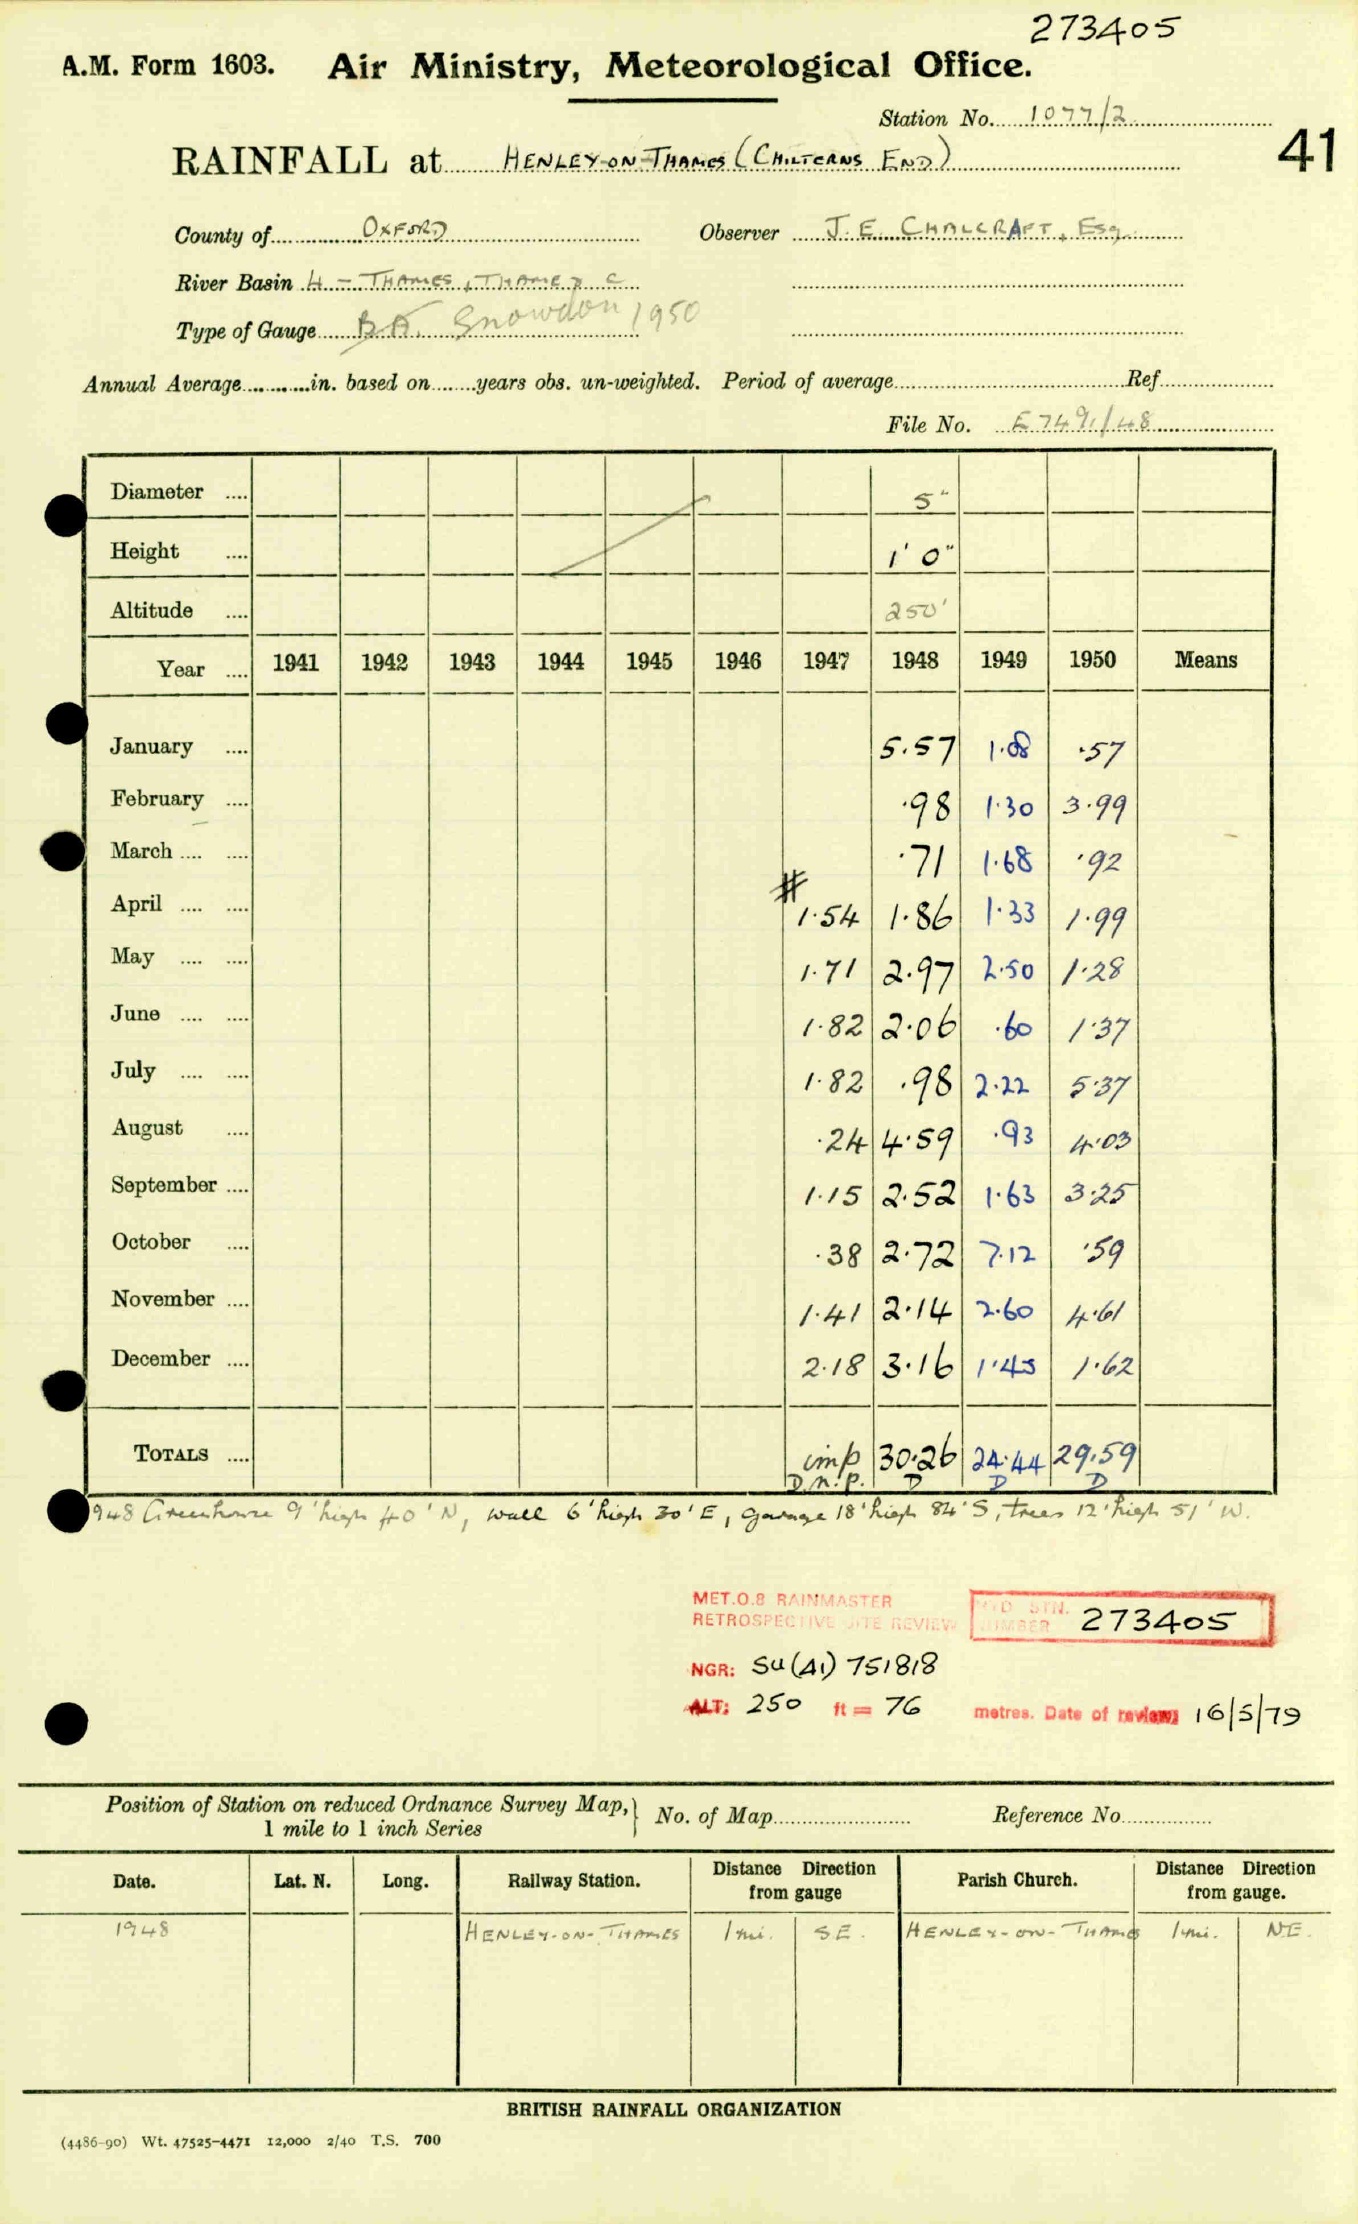 273405
A.M. Form 1603. Air Ministry, Meteorological Office.
Station No. 1077/2
41
RAINFALL at HENLEY-ON-THAMES (CHILTERNS END)
County of OXFORD Observer J. E. CHALCRAFT, Esq.
River Basin 4 - THAMES, THAME > C
Type of Gauge B.A. Snowdon 1950
Annual Average in. based on years obs. un-weighted. Period of average Ref
File No. E7491/48
Diameter .... 5"
Height .... 1' 0"
Altitude .... 250'
Year .... 1941 1942 1943 1944 1945 1946 1947 1948 1949 1950 Means
January .... 5.57 1.08 .57
February .... .98 1.30 3.99
March .... .... .71 1.68 .92
#
April .... .... 1.54 1.86 1.33 1.99
May .... .... 1.71 2.97 2.50 1.28
June .... .... 1.82 2.06 .60 1.37
July .... .... 1.82 .98 2.22 5.37
August .... .24 4.59 .93 4.03
September .... 1.15 2.52 1.63 3.25
October .... .38 2.72 7.12 .59
November .... 1.41 2.14 2.60 4.61
December .... 2.18 3.16 1.45 1.62
TOTALS .... imp 30.26 24.44 29.59
D.n.p. D D D
948 Greenhouse 9' high 40' N, wall 6' high 30' E, garage 18' high 84' S, trees 12' high 51' W.
MET.O.8 RAINMASTER
RETROSPECTIVE SITE REVIEW
STN. NUMBER 273405
NGR: SU(41) 751818
ALT: 250 ft = 76 metres. Date of review: 16/5/79
Position of Station on reduced Ordnance Survey Map, 1 mile to 1 inch Series } No. of Map Reference No.
Date. Lat. N. Long. Railway Station. Distance Direction from gauge Parish Church. Distance Direction from gauge.
1948 HENLEY-ON-THAMES 1 mi. S.E. HENLEY-ON-THAMES 1 mi. N.E.
BRITISH RAINFALL ORGANIZATION
(4486-90) Wt. 47525-4471 12,000 2/40 T.S. 700